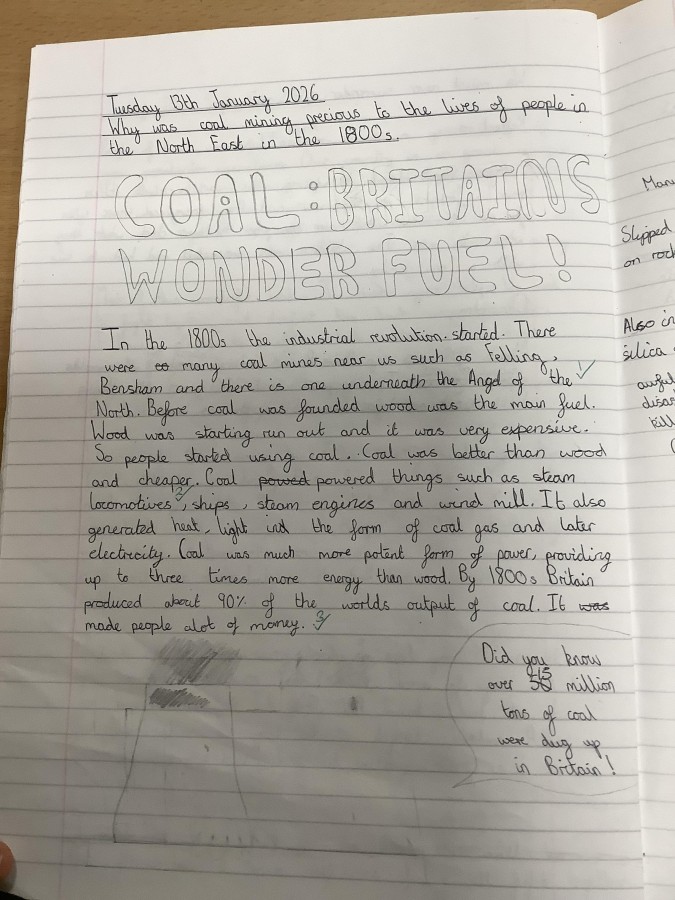 Tuesday 13th January 2026
Why was coal mining precious to the lives of people in
the North East in the 1800s.
COAL: BRITAINS
WONDER FUEL!
In the 1800s the industrial revolution started. There
were many coal mines near us such as Felling,
Bensham and there is one underneath the Angel of the 1
North. Before coal was founded wood was the main fuel.
Wood was starting run out and it was very expensive.
So people started using coal. Coal was better than wood
and cheaper. Coal powed powered things such as steam
2
locomotives, ships, steam engines and wind mill. It also
generated heat, light ind the form of coal gas and later
electricity. Coal was much more potent form of power, providing
up to three times more energy than wood. By 1800s Britain
produced about 90% of the worlds output of coal. It was
made people alot of money. 3
Did you know
over 15 million
tons of coal
were dug up
in Britain!
Slipped
on rock
Also in
silica
awful
disas
kill